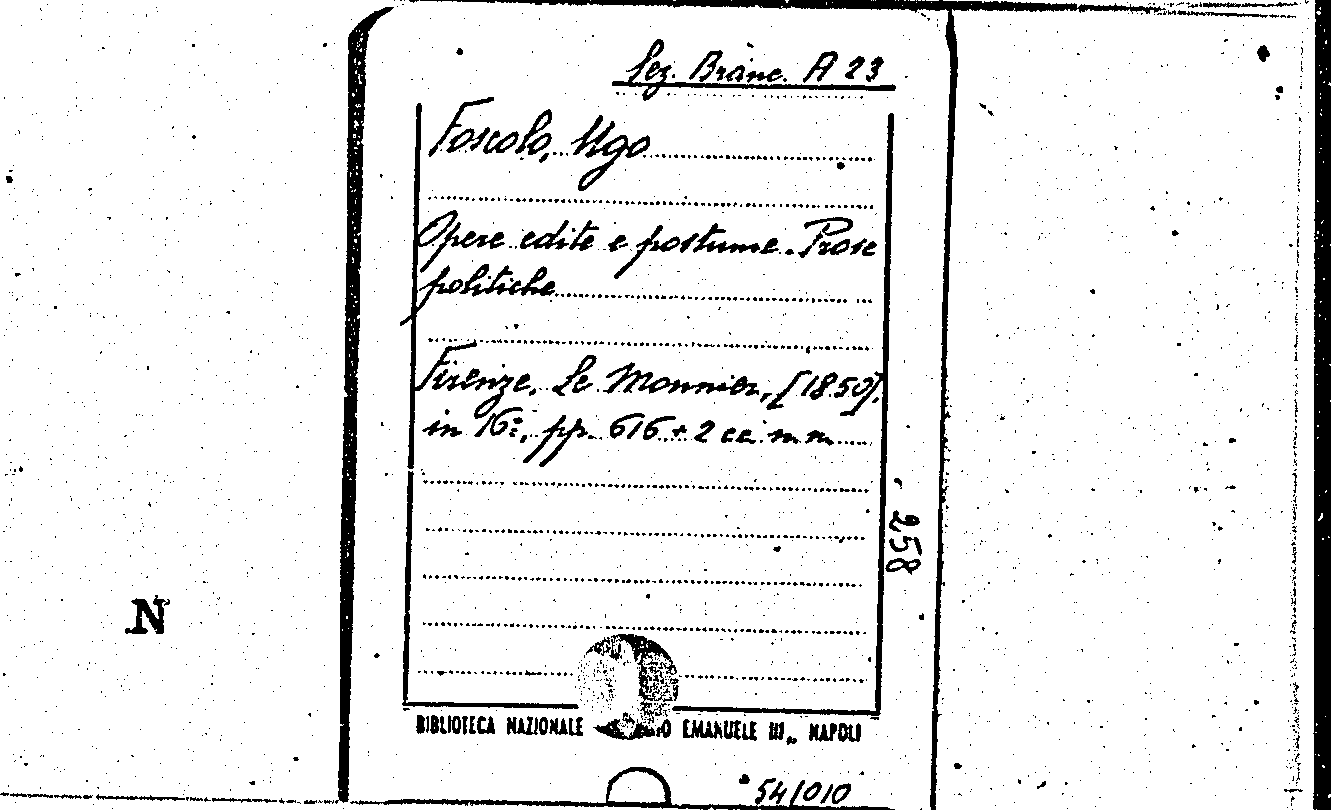 Sez. Branc. A 23
Foscolo, Ugo
Opere edite e postume. Prose
politiche
Firenze, Le Monnier, [1850].
in 16°, pp. 616 + 2 cc. n. n.
258
N
BIBLIOTECA NAZIONALE EMANUELE III„ NAPOLI
54/010